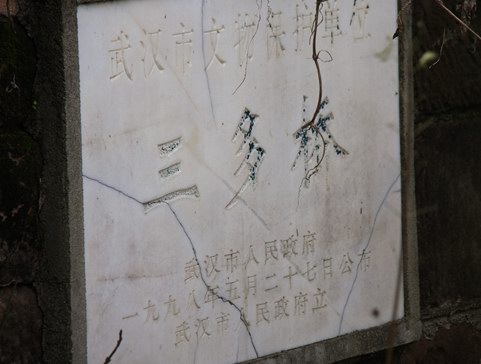 武汉市文物保护单位
三多桥
武汉市人民政府
一九九八年五月二十七日公布
武汉市人民政府立